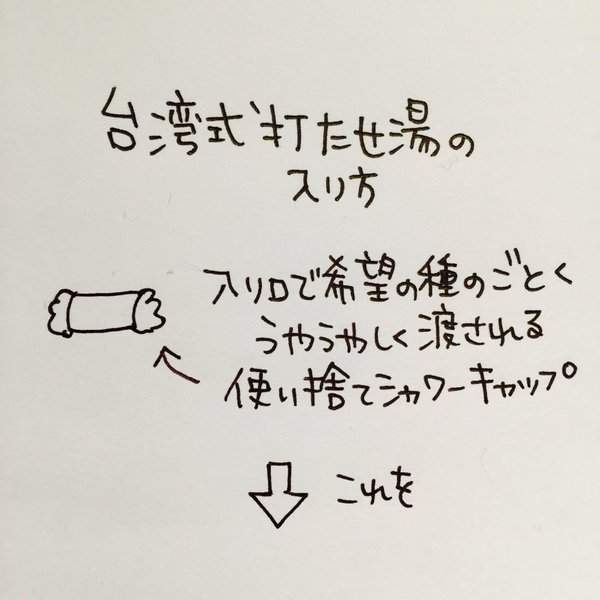 台湾式打たせ湯の
入り方
入り口で希望の種のごとく
うやうやしく渡される
使い捨てシャワーキャップ
これを